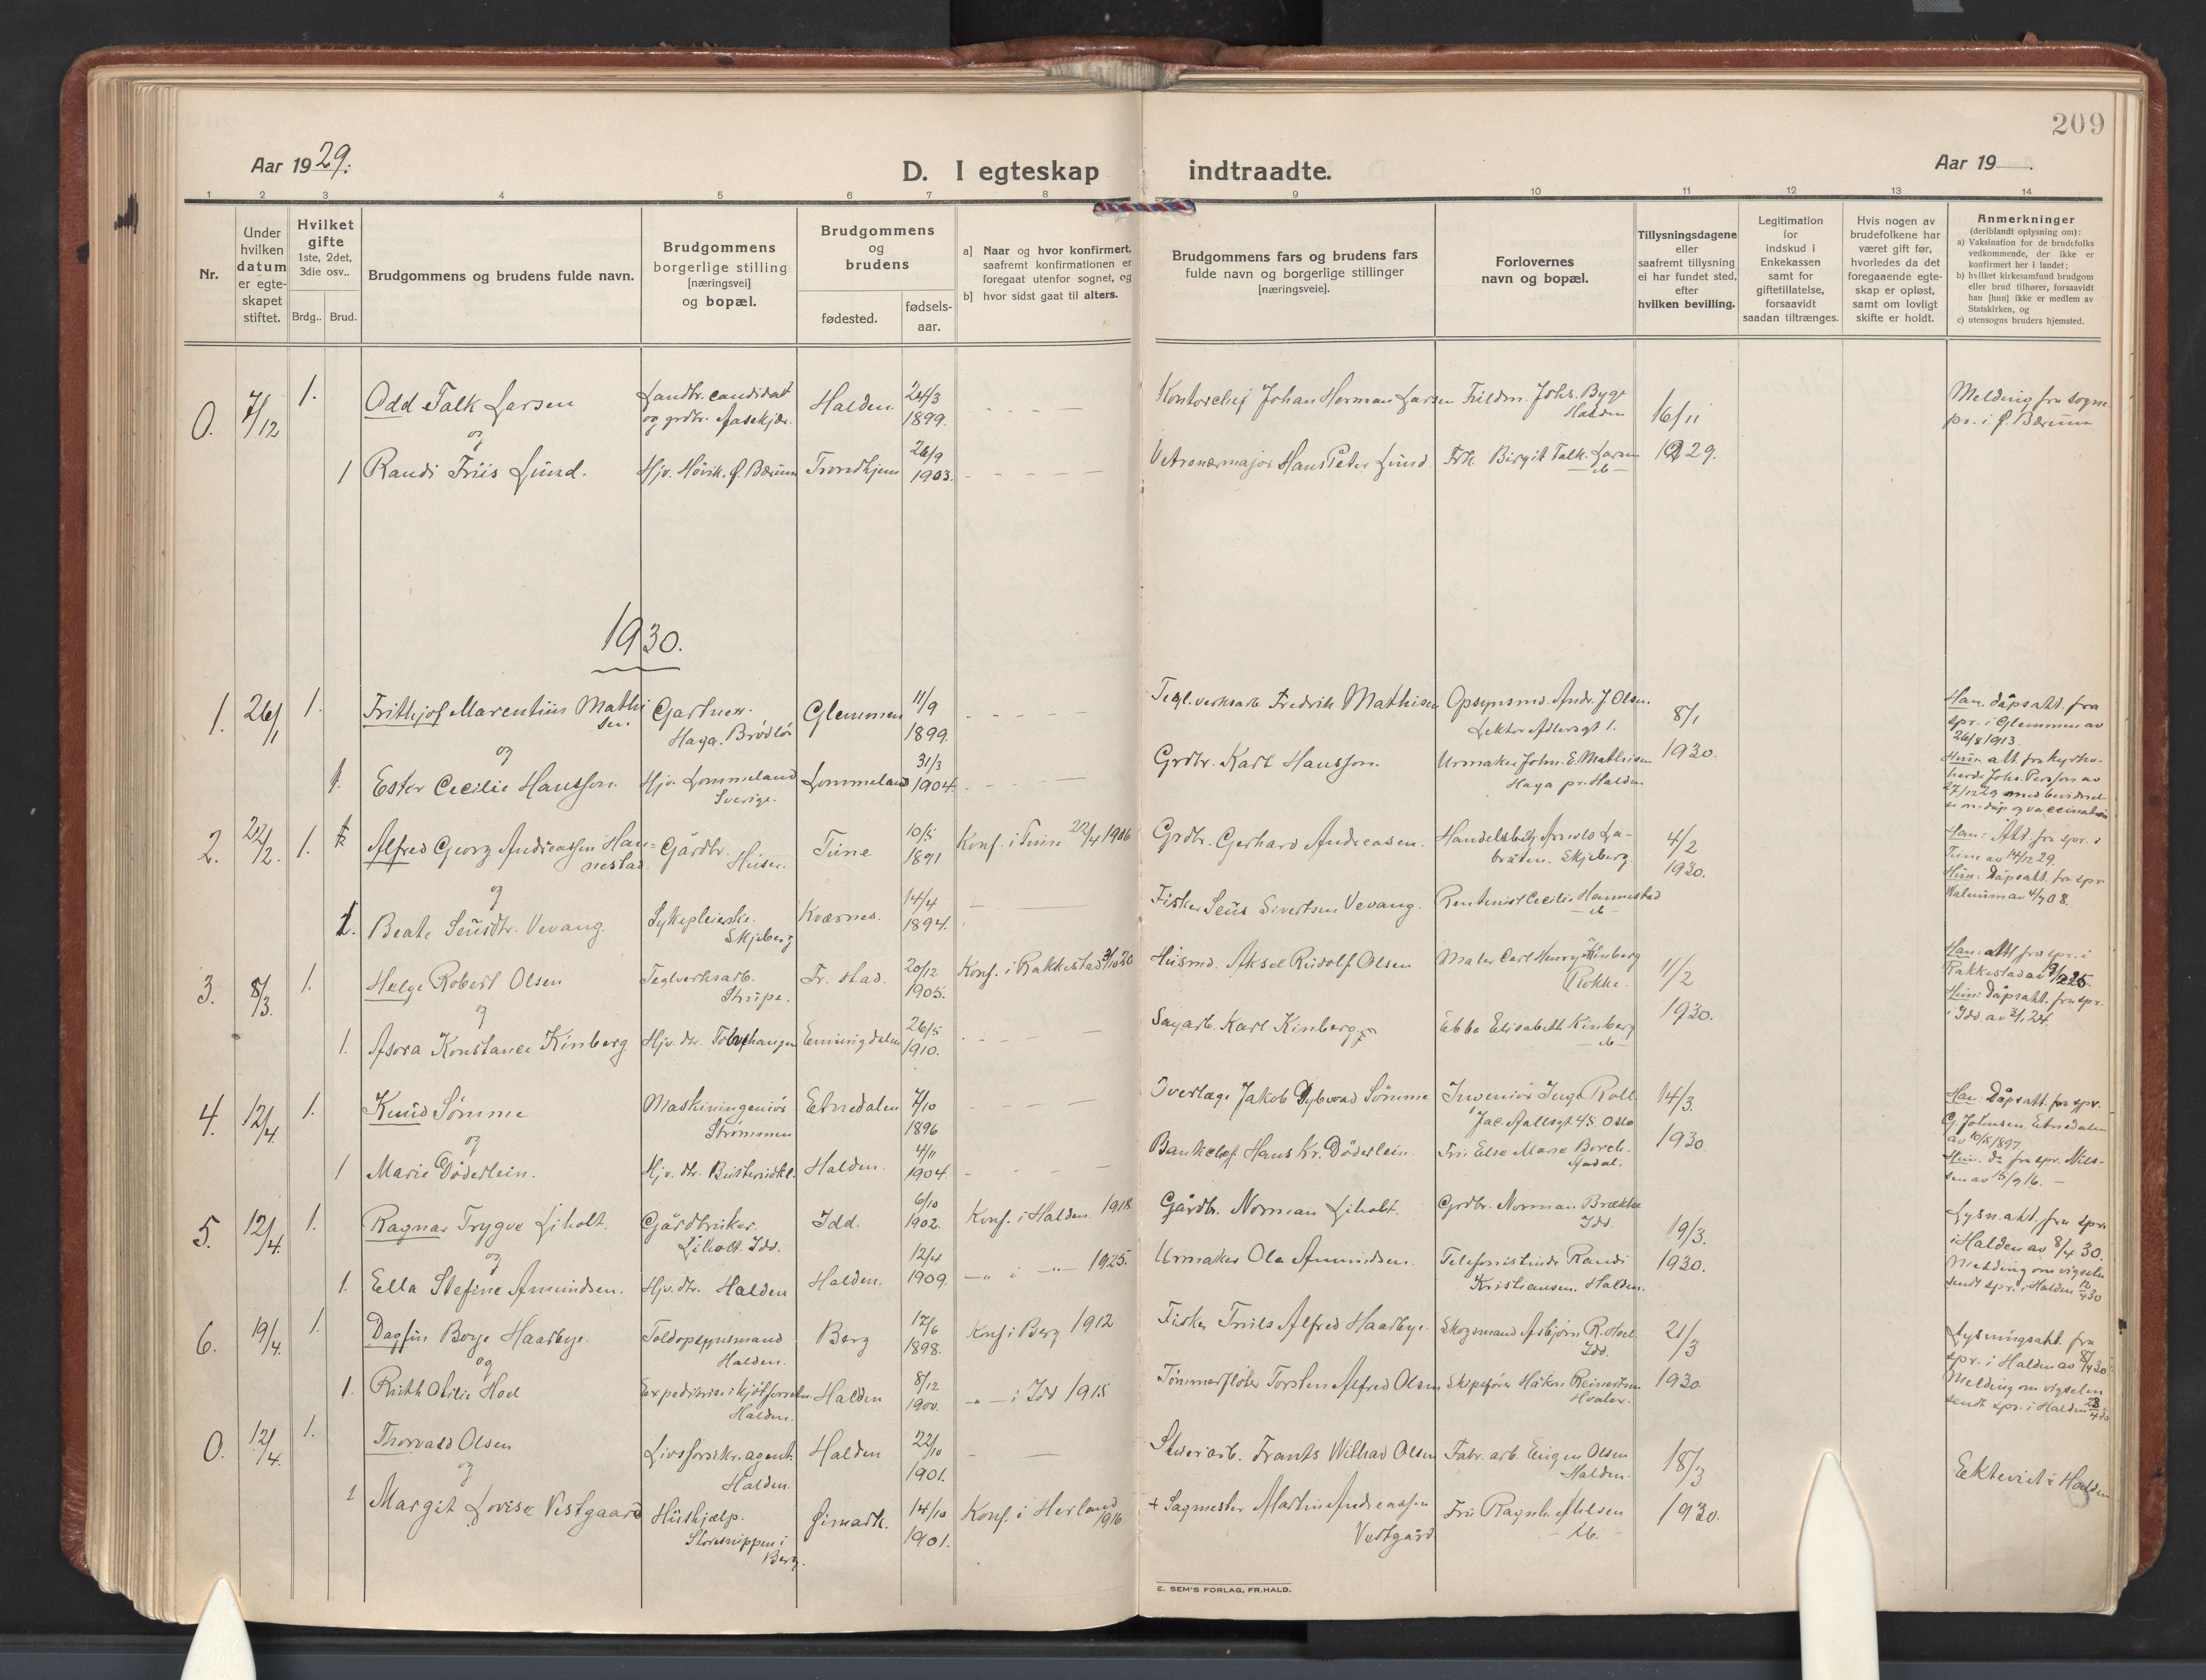 209
Aar 1929.
D. I egteskap indtraadte.
Aar 19
1 2 3 4 5 6 7 8 9 10 11 12 13 14
Nr.
Under
hvilken
datum
er egte-
skapet
stiftet.
Hvilket
gifte
1ste, 2det,
3die osv..
Brdg.. Brud.
Brudgommens og brudens fulde navn.
Brudgommens
borgerlige stilling
[næringsvei]
og bopæl.
Brudgommens
og
brudens
fødested.
fødsels-
aar.
a] Naar og hvor konfirmert,
saafremt konfirmationen er
foregaat utenfor sognet, og
b] hvor sidst gaat til alters.
Brudgommens fars og brudens fars
fulde navn og borgerlige stillinger
[næringsveie].
Forlovernes
navn og bopæl.
Tillysningsdagene
eller
saafremt tillysning
ei har fundet sted,
efter
hvilken bevilling.
Legitimation
for
indskud i
Enkekassen
samt for
giftetillatelse,
forsaavidt
saadan tiltrænges.
Hvis nogen av
brudefolkene har
været gift før,
hvorledes da det
foregaaende egte-
skap er opløst,
samt om lovligt
skifte er holdt.
Anmerkninger
(deriblandt oplysning om):
a) Vaksination for de brudefolks
vedkommende, der ikke er
konfirmert her i landet;
b) hvilket kirkesamfund brudgom
eller brud tilhører, forsaavidt
han [hun] ikke er medlem av
Statskirken, og
c) utensogns bruders hjemsted.
0. 7/12 1. Odd Falk Larsen Landbr. candidat Halden. 24/3 Kontorchef Johan Herman Larsen Fuldm. Johs. Bye Melding fra sogne
og grdbr. 1899. Halden 16/11 pr. i Ø. Bærum
og
1 Randi Friis Lund. Hjv. Høvik. Ø. Bærum Trondhjem 26/9 Veterinærmajor Hans Peter Lund. Frk Birgit Falk Larsen 1929.
1903.
1930.
1. 26/1 1. Frithjof Marentius Mathi Gartner. Glemmen 11/9 Teglverksarb. Fredrik Mathisen Opsynsmd. Andr. J. Olsen. 8/1 Han: dåpsatt. fra
sen. Haga. 1899. spr. i Glemmen av
og 26/8 1913.
1. Ester Cecilie Hansson. Hjv. Lommeland Lommeland 31/3 Grdbr. Karl Hansson. Urmaker John. E. Mathisen 1930. Hun att. fra kyrko-
Sverige. 1904. Haga pr. Halden herde Johs. Persson av
2. 22/2. 1. Alfred Georg Andreassen Han- Gårdbr. Tune 10/5 Konf. i Tune 22/4 1906 Grdbr. Gerhard Andreasen. 4/2 Han: Att. fra spr. i
nestad. 1891 Skjeberg. 1930. Tune av 14/12 29.
og Hun: Dåpsatt. fra spr
1. Beate Seusdtr. Vevang. Sykepleierske. Kværnes. 14/4 Fisker Seus Sivertsen Vevang. Rentenist Cecilie Hannestad
Skjeberg 1894.
3. 8/3. 1. Helge Robert Olsen Teglverksarb. Fr. stad. 20/12 Konf. i Rakkestad Husmd. Aksel Rudolf Olsen Maler Carl Henry Kinberg 11/2 Han: att fra spr. i
1905. Rokke. Rakkestad av
og Hun: Dåpsatt. fra spr.
1. Asora Konstance Kinberg. Hjv. dtr. Enningdalen 26/5 Sagarb. Karl Kinberg Ebba Elisabeth Kinberg 1930. i Idd. av
1910.
4. 12/4. 1. Knud Sømme Maskiningeniør Etnedalen 7/10 Overlæge Jakob Dybwad Sømme Ingeniør Inge Roll 14/3. Han: Dåpsatt. fra spr.
Strømmen 1896 Jac. Aallsgt 45. Oslo G. Johnsen, Etnedalen
og av 10/5 1897.
1 Marie Döderlein. Hjv. dtr. Halden. 4/11 Bankchef Hans Kr. Döderlein. Fru Else Marie Borch. 1930 Hun. do fra spr. Nils-
1904. sen av 15/9 16. —
5. 12/4. 1. Ragnar Trygve Liholt. Gårdbruker. Idd. 6/10 Konf. i Halden. 1918 Gårdbr. Norman Liholt. Grdbr. Norman Brække 19/3. Lysn. att. fra spr.
Liholt. Idd. 1902. Idd. i Halden av 8/4 30.
og Melding om vigselen
1. Ella Stefine Amundsen. Hjv. dtr. Halden Halden. 12/4 —"— i —"— 1925. Urmaker Ola Amundsen. Telefonistinde Randi 1930. sendt spr. i Halden 12/4 30
1909. Kristiansen. Halden.
6. 19/4. 1. Dagfin Borge Haarbye. Toldopsynsmand Berg 17/6 Konf. i Berg 1912 Fisker Truls Alfred Haarbye. Skogsmand Asbjørn R. Hoel 21/3 Lysningsatt. fra
Halden. 1898. Idd. spr. i Halden av 8/4 30.
og Melding om vigselen
1. Ruth Otilie Hoel Halden 8/12 —"— i Idd 1915 Tømmerfløter Torsten Alfred Olsen Skipsfører Håkon Reinertsen 1930. sendt spr. i Halden
Halden. 1900. Hvaler.
0. 12/4. 1. Thorvald Olsen Livsforsikr. agent. Halden 22/10 Frants Wilhad Olsen Fabr. arb. Eugen Olsen 18/3 Ektevict i Halden
Halden. 1901. Halden.
og
1 Margit Lovise Vestgaard Hushjælp. Øimark. 14/10 Konf. i Herland 1916 + Sagmester Martin Andreassen 1930.
i Berg. 1901. Vestgård
E. SEM'S FORLAG, FR.HALD.